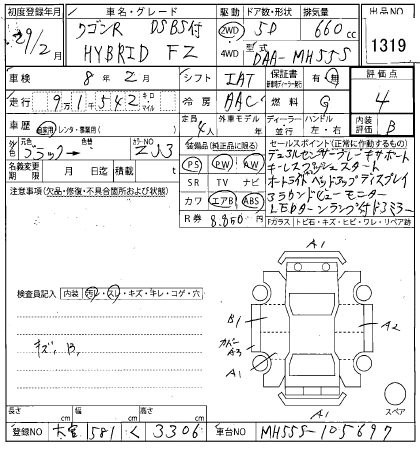 初度登録年月 車名・グレード 駆動 ドア数・形状 排気量 出品NO
29/2月 ワゴンR DSBS付 2WD 5D 660cc 1319
HYBRID FZ 4WD 型式 DAA-MH55S
車検 8年2月 シフト IAT 保証書 有・無 評価点
走行 91542 キロ マイル 冷房 AAC 燃料 G 4
車歴 自家用・レンタ・事業用( ) 定員 4人 外車モデル 年 ディーラー 並行 ハンドル 左・右 内装評価 B
外元色 ブラック→ 色替 カラーNO ZJ3 装備品(純正品に限る) セールスポイント(正常に作動するもの)
名義変更期限 月 日 積載 t PS PW AW デュアルセンサーブレーキサポート
キーレスプッシュスタート
注意事項(欠品・修復・不具合箇所および状態) SR TV ナビ オートライト ヘッドアップディスプレイ
カワ エアB ABS 全方位ビューモニター
R券 8,850円 LEDターンランプ付ドアミラー
Fガラス トビ石・キズ・ヒビ・ワレ・リペア跡
検査員記入 内装 汚れ・スレ・キズ・キレ・コゲ・穴
キズ、B,
A1
B1
A2
カバー A3
A1
A1
スペア
長さ cm 幅 cm 高さ cm
登録NO 大宮 581 く 3306 車台NO MH55S-105697